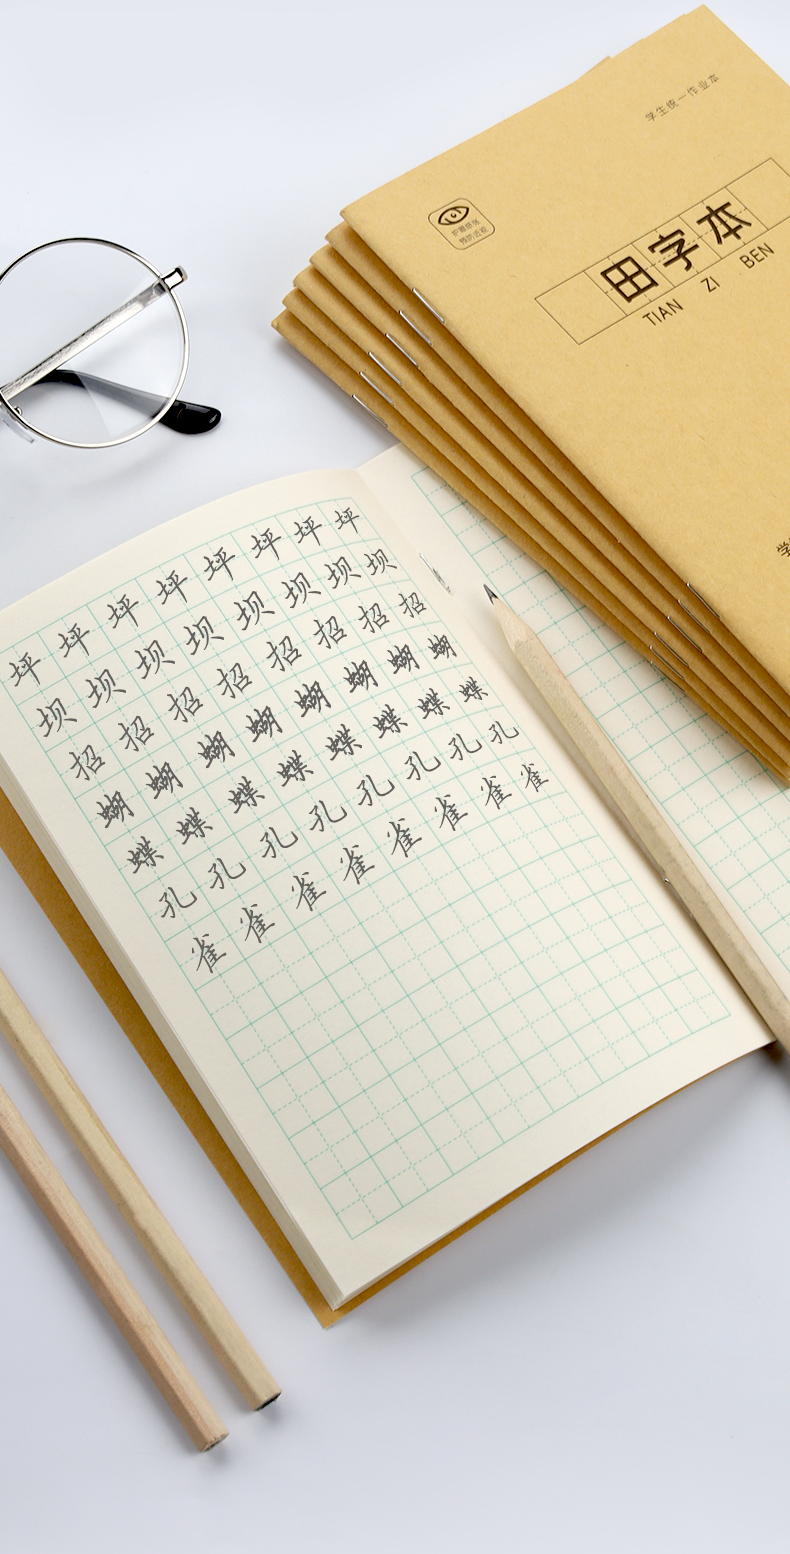 学生统一作业本
预防近视
田字本
TIAN ZI BEN
坪坪坪坪坪坪坪坪
坝坝坝坝坝坝坝坝
招招招招招招招招
蝴蝴蝴蝴蝴蝴蝴蝴
蝶蝶蝶蝶蝶蝶蝶蝶
孔孔孔孔孔孔孔孔
雀雀雀雀雀雀雀雀